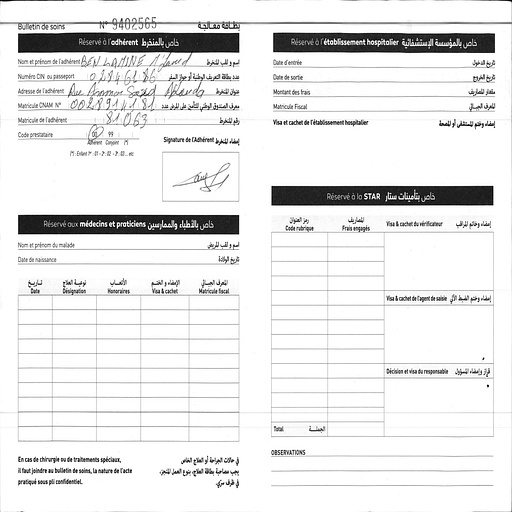 Bulletin de soins N° 9402565 بطاقة معالجة
Réservé à l'adhérent خاص بالمنخرط
Nom et prénom de l'adhérent BEN LAMINE اسم و لقب المنخرط
Numéro CIN ou passeport 02846186 عدد بطاقة التعريف الوطنية أو جواز السفر
Adresse de l'adhérent Rue عنوان المنخرط
Matricule CNAM N° معرف الصندوق الوطني للتأمين على المرض عدد
Matricule de l'adhérent 81063 رقم المنخرط
Code prestataire 00 99
Adhérent Conjoint (*)
(*) : Enfant 1er : 01 - 2e : 02 - 3e : 03 ... etc
Signature de l'Adhérent إمضاء المنخرط
Réservé aux médecins et praticiens خاص بالأطباء والممارسين
Nom et prénom du malade اسم و لقب المريض
Date de naissance تاريخ الولادة
تاريخ نوعية العلاج الأتعاب الإمضاء و الختم المعرف الجبائي
Date Désignation Honoraires Visa & cachet Matricule fiscal
En cas de chirurgie ou de traitements spéciaux,
il faut joindre au bulletin de soins, la nature de l'acte
pratiqué sous pli confidentiel.
في حالات الجراحة أو العلاج الخاص
يجب مصاحبة بطاقة العلاج، بنوع العمل المنجز،
في ظرف سري.
Réservé à l'établissement hospitalier خاص بالمؤسسة الإستشفائية
Date d'entrée تاريخ الدخول
Date de sortie تاريخ الخروج
Montant des frais مقدار المصاريف
Matricule Fiscal المعرف الجبائي
Visa et cachet de l'établissement hospitalier إمضاء وختم المستشفى أو المصحة
Réservé à la STAR خاص بتأمينات ستار
رمز العنوان المصاريف
Code rubrique Frais engagés
Visa & cachet du vérificateur إمضاء وخاتم المراقب
Visa & cachet de l'agent de saisie إمضاء وختم الضبط الآلي
Décision et visa du responsable قرار وإمضاء المسؤول
Total الجملة
OBSERVATIONS